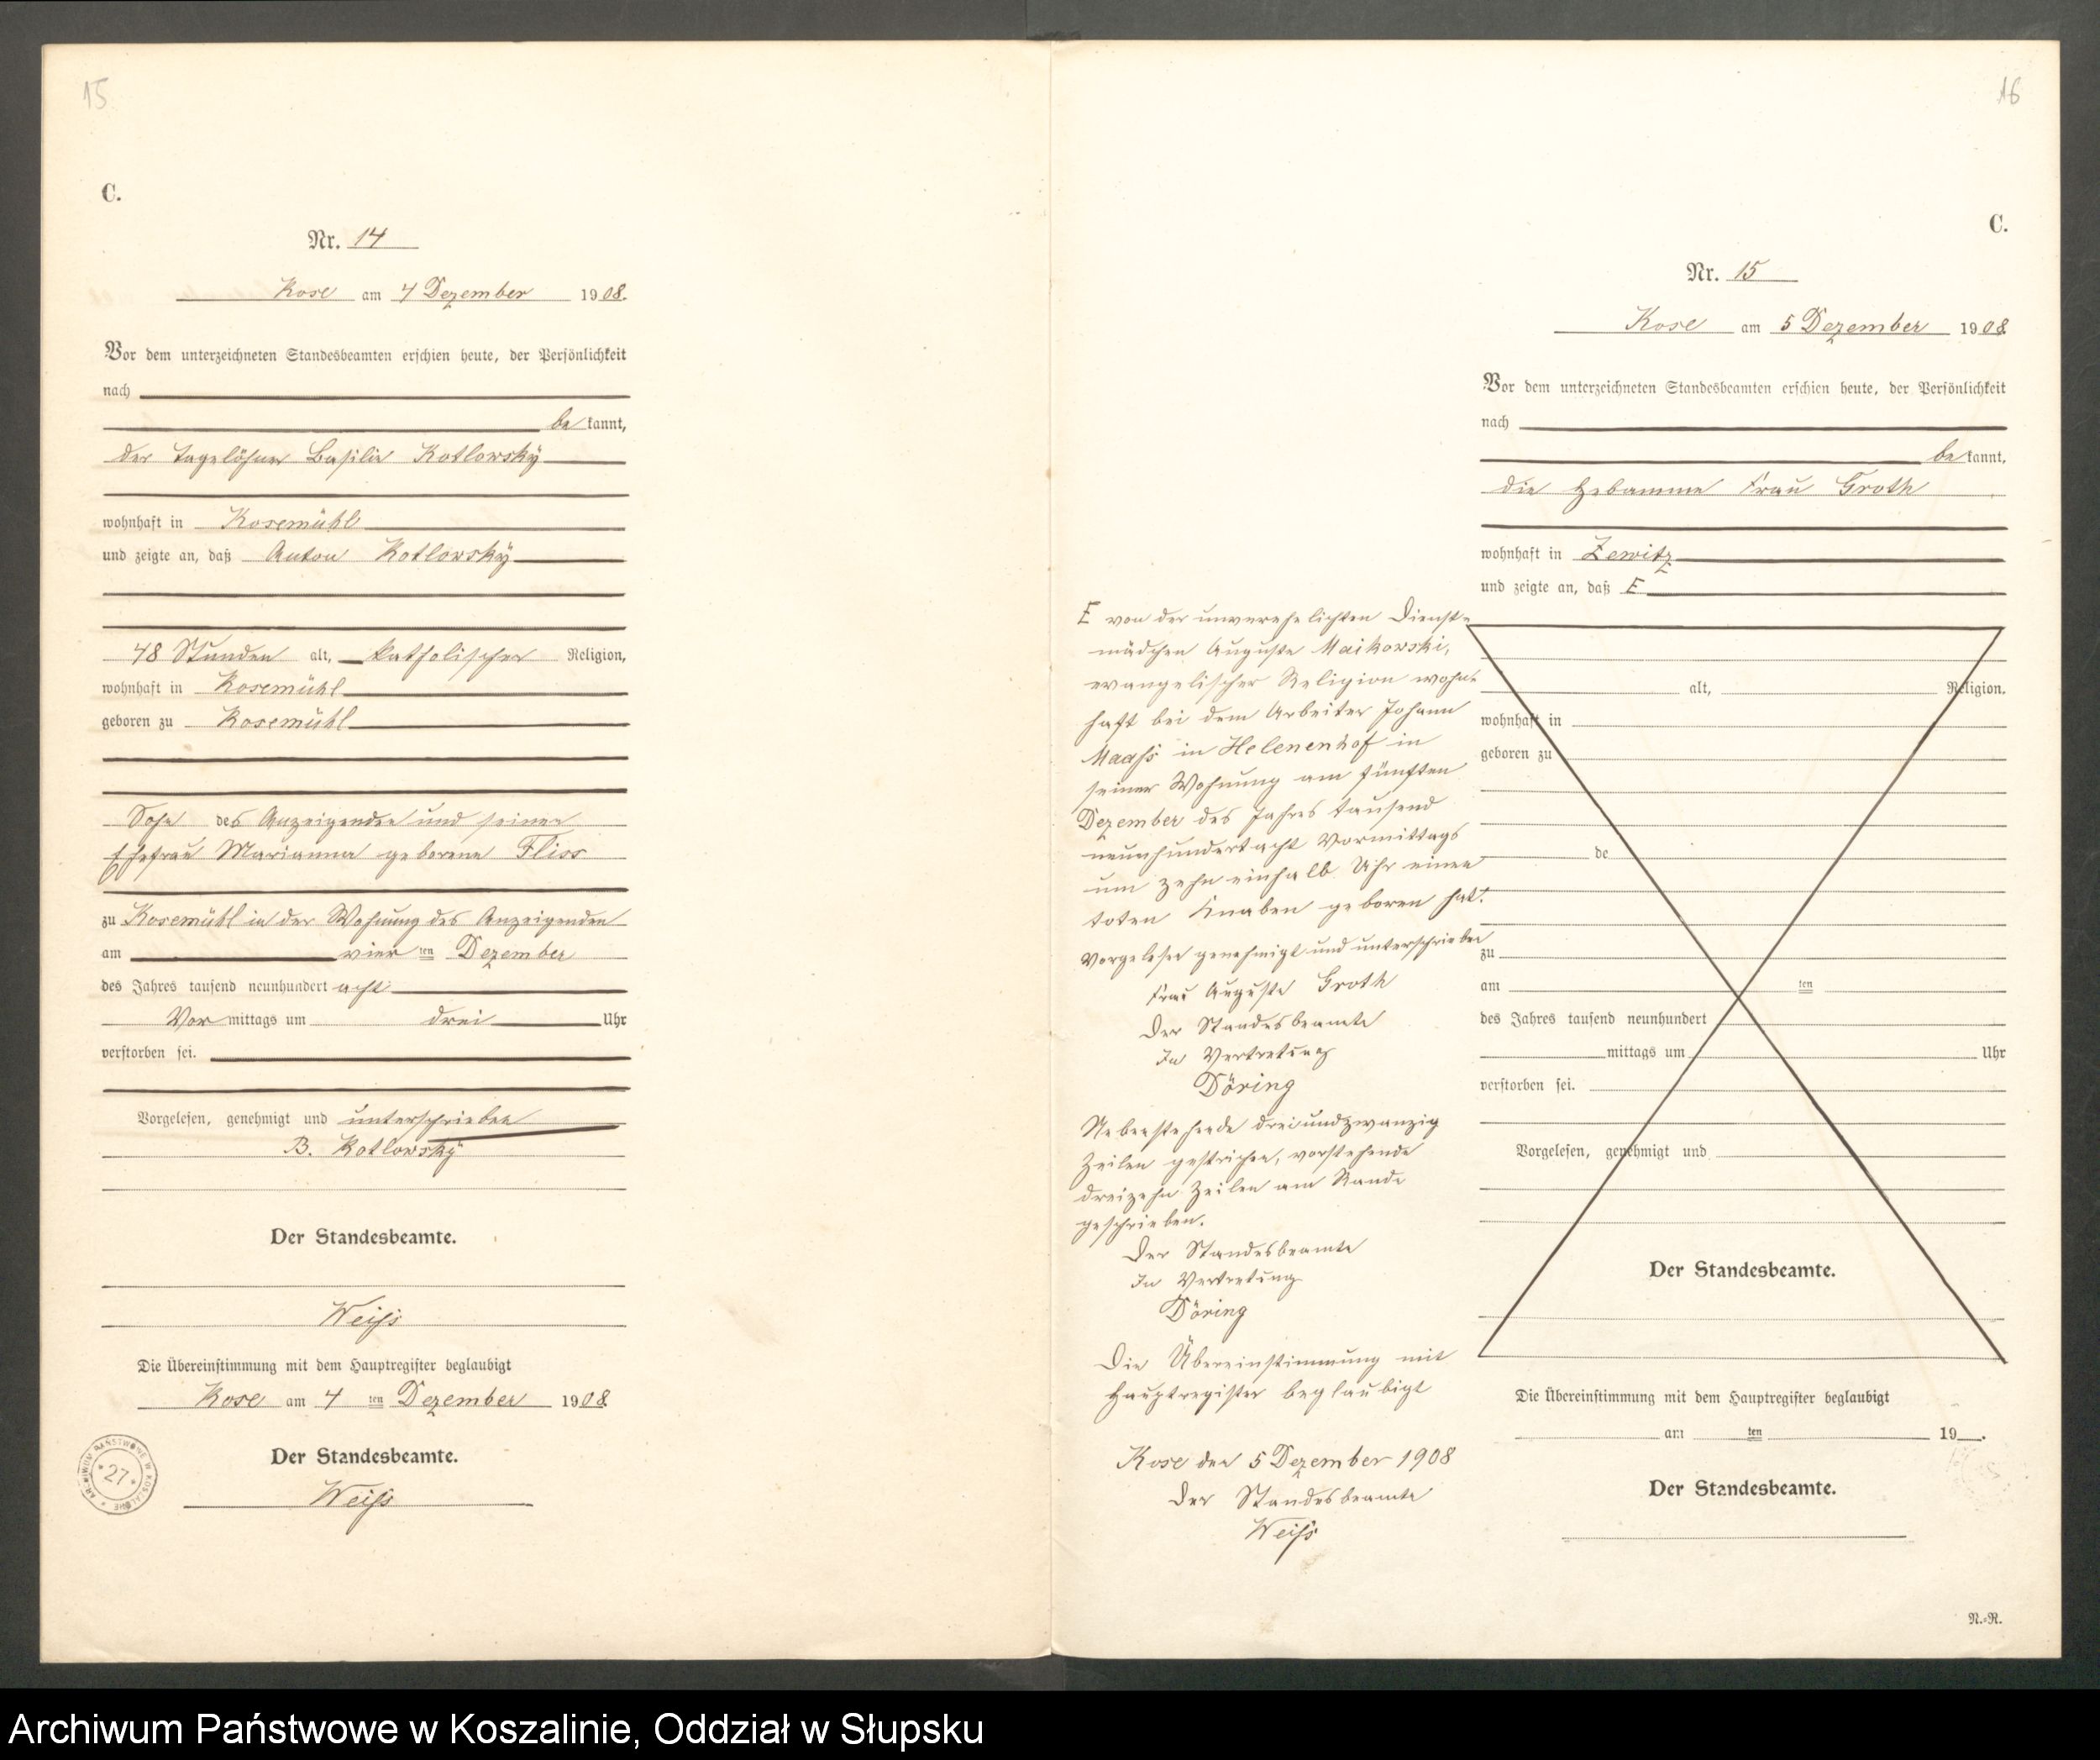 15
C.
Nr. 14
Kose am 4 Dezember 1908.
Vor dem unterzeichneten Standesbeamten erschien heute, der Persönlichkeit
nach
bekannt,
der Tagelöhner Basilia Kotlowsky
wohnhaft in Kosemühl
und zeigte an, daß Anton Kotlowsky
48 Stunden alt, katholischer Religion,
wohnhaft in Kosemühl
geboren zu Kosemühl
Sohn des Anzeigenden und seiner
Ehefrau Marianna geborene Fliss
zu Kosemühl in der Wohnung des Anzeigenden
am vierten Dezember
des Jahres tausend neunhundert acht
Vormittags um drei Uhr
verstorben sei.
Vorgelesen, genehmigt und unterschrieben
B. Kotlowsky
Der Standesbeamte.
Weiß
Die Übereinstimmung mit dem Hauptregister beglaubigt
Kose am 4 ten Dezember 1908
Der Standesbeamte.
Weiß
ARCHIWUM PAŃSTWOWE W KOSZALINIE * 27 *
16
C.
Nr. 15
Kose am 5 Dezember 1908
Vor dem unterzeichneten Standesbeamten erschien heute, der Persönlichkeit
nach
bekannt,
die Hebamme Frau Groth
wohnhaft in Zewitz
und zeigte an, daß F
F von der unverehelichten Dienst-
mädchen Auguste Maikowski,
evangelischer Religion wohn-
haft bei dem Arbeiter Johann
Maaß in Helenenhof in
seiner Wohnung am fünften
Dezember des Jahres tausend
neunhundertacht Vormittags
um zehn einhalb Uhr einen
toten Knaben geboren hat.
Vorgelesen genehmigt und unterschrieben
Frau Auguste Groth
Der Standesbeamte
In Vertretung
Döring
Nebenstehende dreiundzwanzig
Zeilen gestrichen, vorstehende
dreizehn Zeilen am Rande
geschrieben.
Der Standesbeamte
In Vertretung
Döring
Die Übereinstimmung mit
Hauptregister beglaubigt
Kose den 5 Dezember 1908
Der Standesbeamte
Weiß
alt, Religion.
wohnhaft in
geboren zu
de
zu
am ten
des Jahres tausend neunhundert
mittags um Uhr
verstorben sei.
Vorgelesen, genehmigt und
Der Standesbeamte.
Die Übereinstimmung mit dem Hauptregister beglaubigt
am ten 19 .
Der Standesbeamte.
N.=R.
Archiwum Państwowe w Koszalinie, Oddział w Słupsku